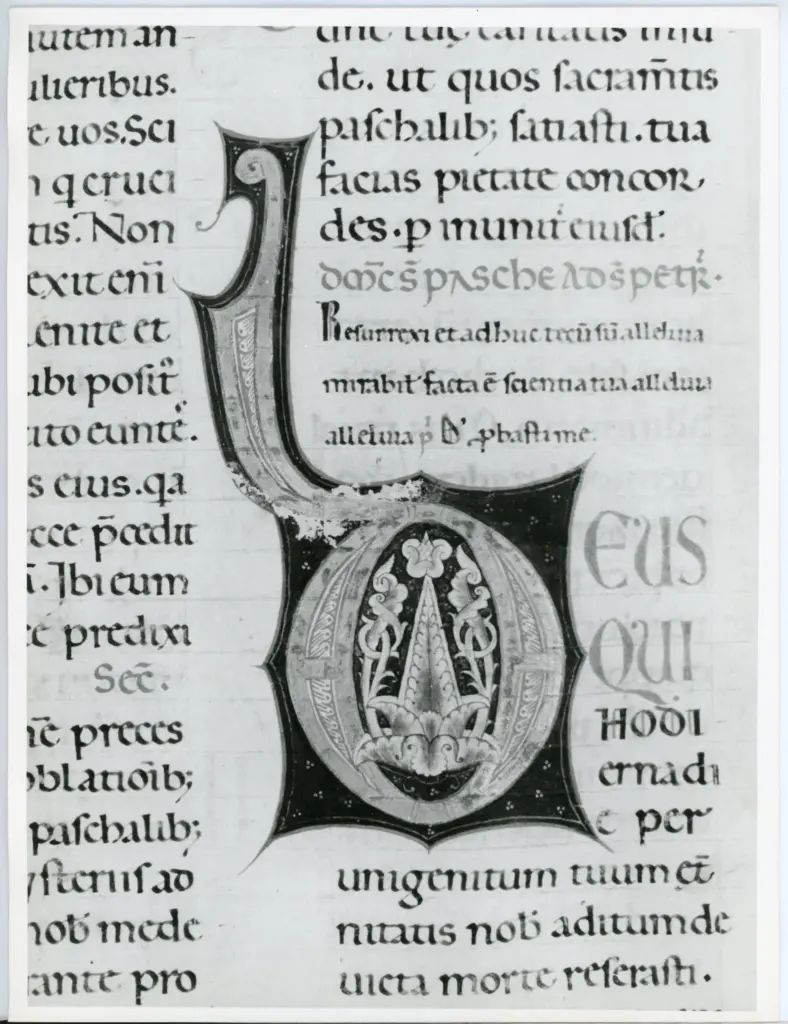 autem an
ulieribus.
e uos. Sci
n q cruci
tis. Non
exit eni̅
uenite et
ubi posit
cito eunte.
s eius. qa
ecce p̅cedit
Ibi eum
predixi
Sec̅.
preces
oblatioib;
paschalib;
ysteriis ad
nob mede
rante pro
de. ut quos sacram̅tis
paschalib; satiasti. tua
facias pietate concor
des. p munit eiusd.
dom̅c s̅ pasche ad s̅ petr.
Resurrexi et adhuc tecu̅ su̅. alleluia
mirabil facta e̅ scientia tua alleluia
alleluia p̅ D̅ne pbasti me.
DEUS
QUI
HODI
erna di
e per
unigenitum tuum et̅
nitatis nob aditum de
uicta morte reserasti.